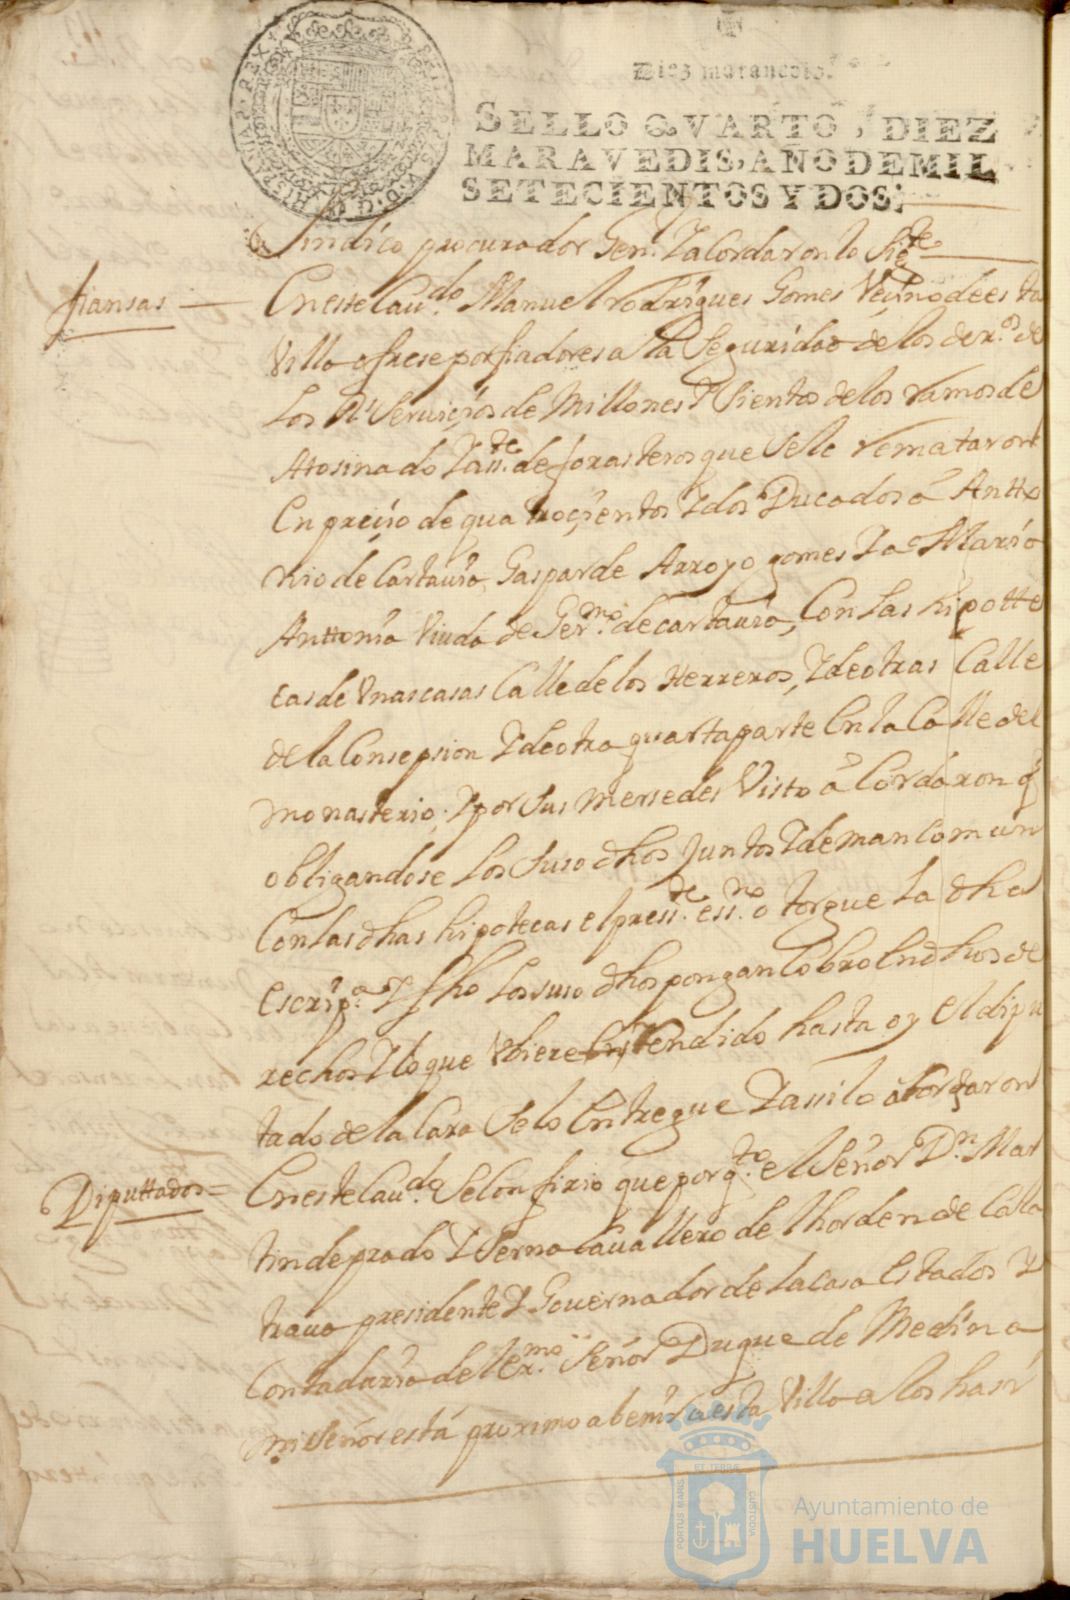 Diez marauedis.
SELLO QVARTO, DIEZ
MARAVEDIS, AÑO DE MIL
SETECIENTOS Y DOS.
Sindico procurador Gen.l Y acordaron lo sig.te
fiansas
En este Cau.do Manuel rodrigues Gomes Vecino de esta
Villa ofrese por fiadores a la Seguridad de los der.os de
Los Rs Servicios de Millones Y Sientos de los ramos de
Atosinado Y de forasteros que se le remataron
En precio de quatrocientos Y dos Ducados a Antto
nio de Cartauia, Gaspar de Arroyo gomes Y a Maria
Anttonia Viuda de Ger.mo de cartauia, Con las hipotte
cas de Vnas casas Calle de los Herreros, Y de otras Calle
de la Consepsion Y de otra quarta parte En la Calle del
monasterio; Y por sus mersedes Visto acordaron q
obligandose los suso dhos Juntos Y de mancomun
Con las dhas hipotecas el press.te ess.no otorgue la dha
escrip.a Y fho los suso dhos pongan cobro En dhos de
rechos Y lo que Vbiere Rendido hasta oy el dipu
tado de la Cara se lo Entregue Y assi lo acordaron
Diputtados=
En este Cau.do se Confirio que por q.to el Señor D.n Mar
tin de prado Y Serna Cauallero de lhorden de Cala
traua presidente Y Gouernador de la Casa Estados Y
Contaduria del Ex.mo Señor Duque de Medina
mi Señor está proximo a benir a esta Villa a las hasi
PORTUS MARIS
ET TERRAE
CUSTODIA
Ayuntamiento de
HUELVA